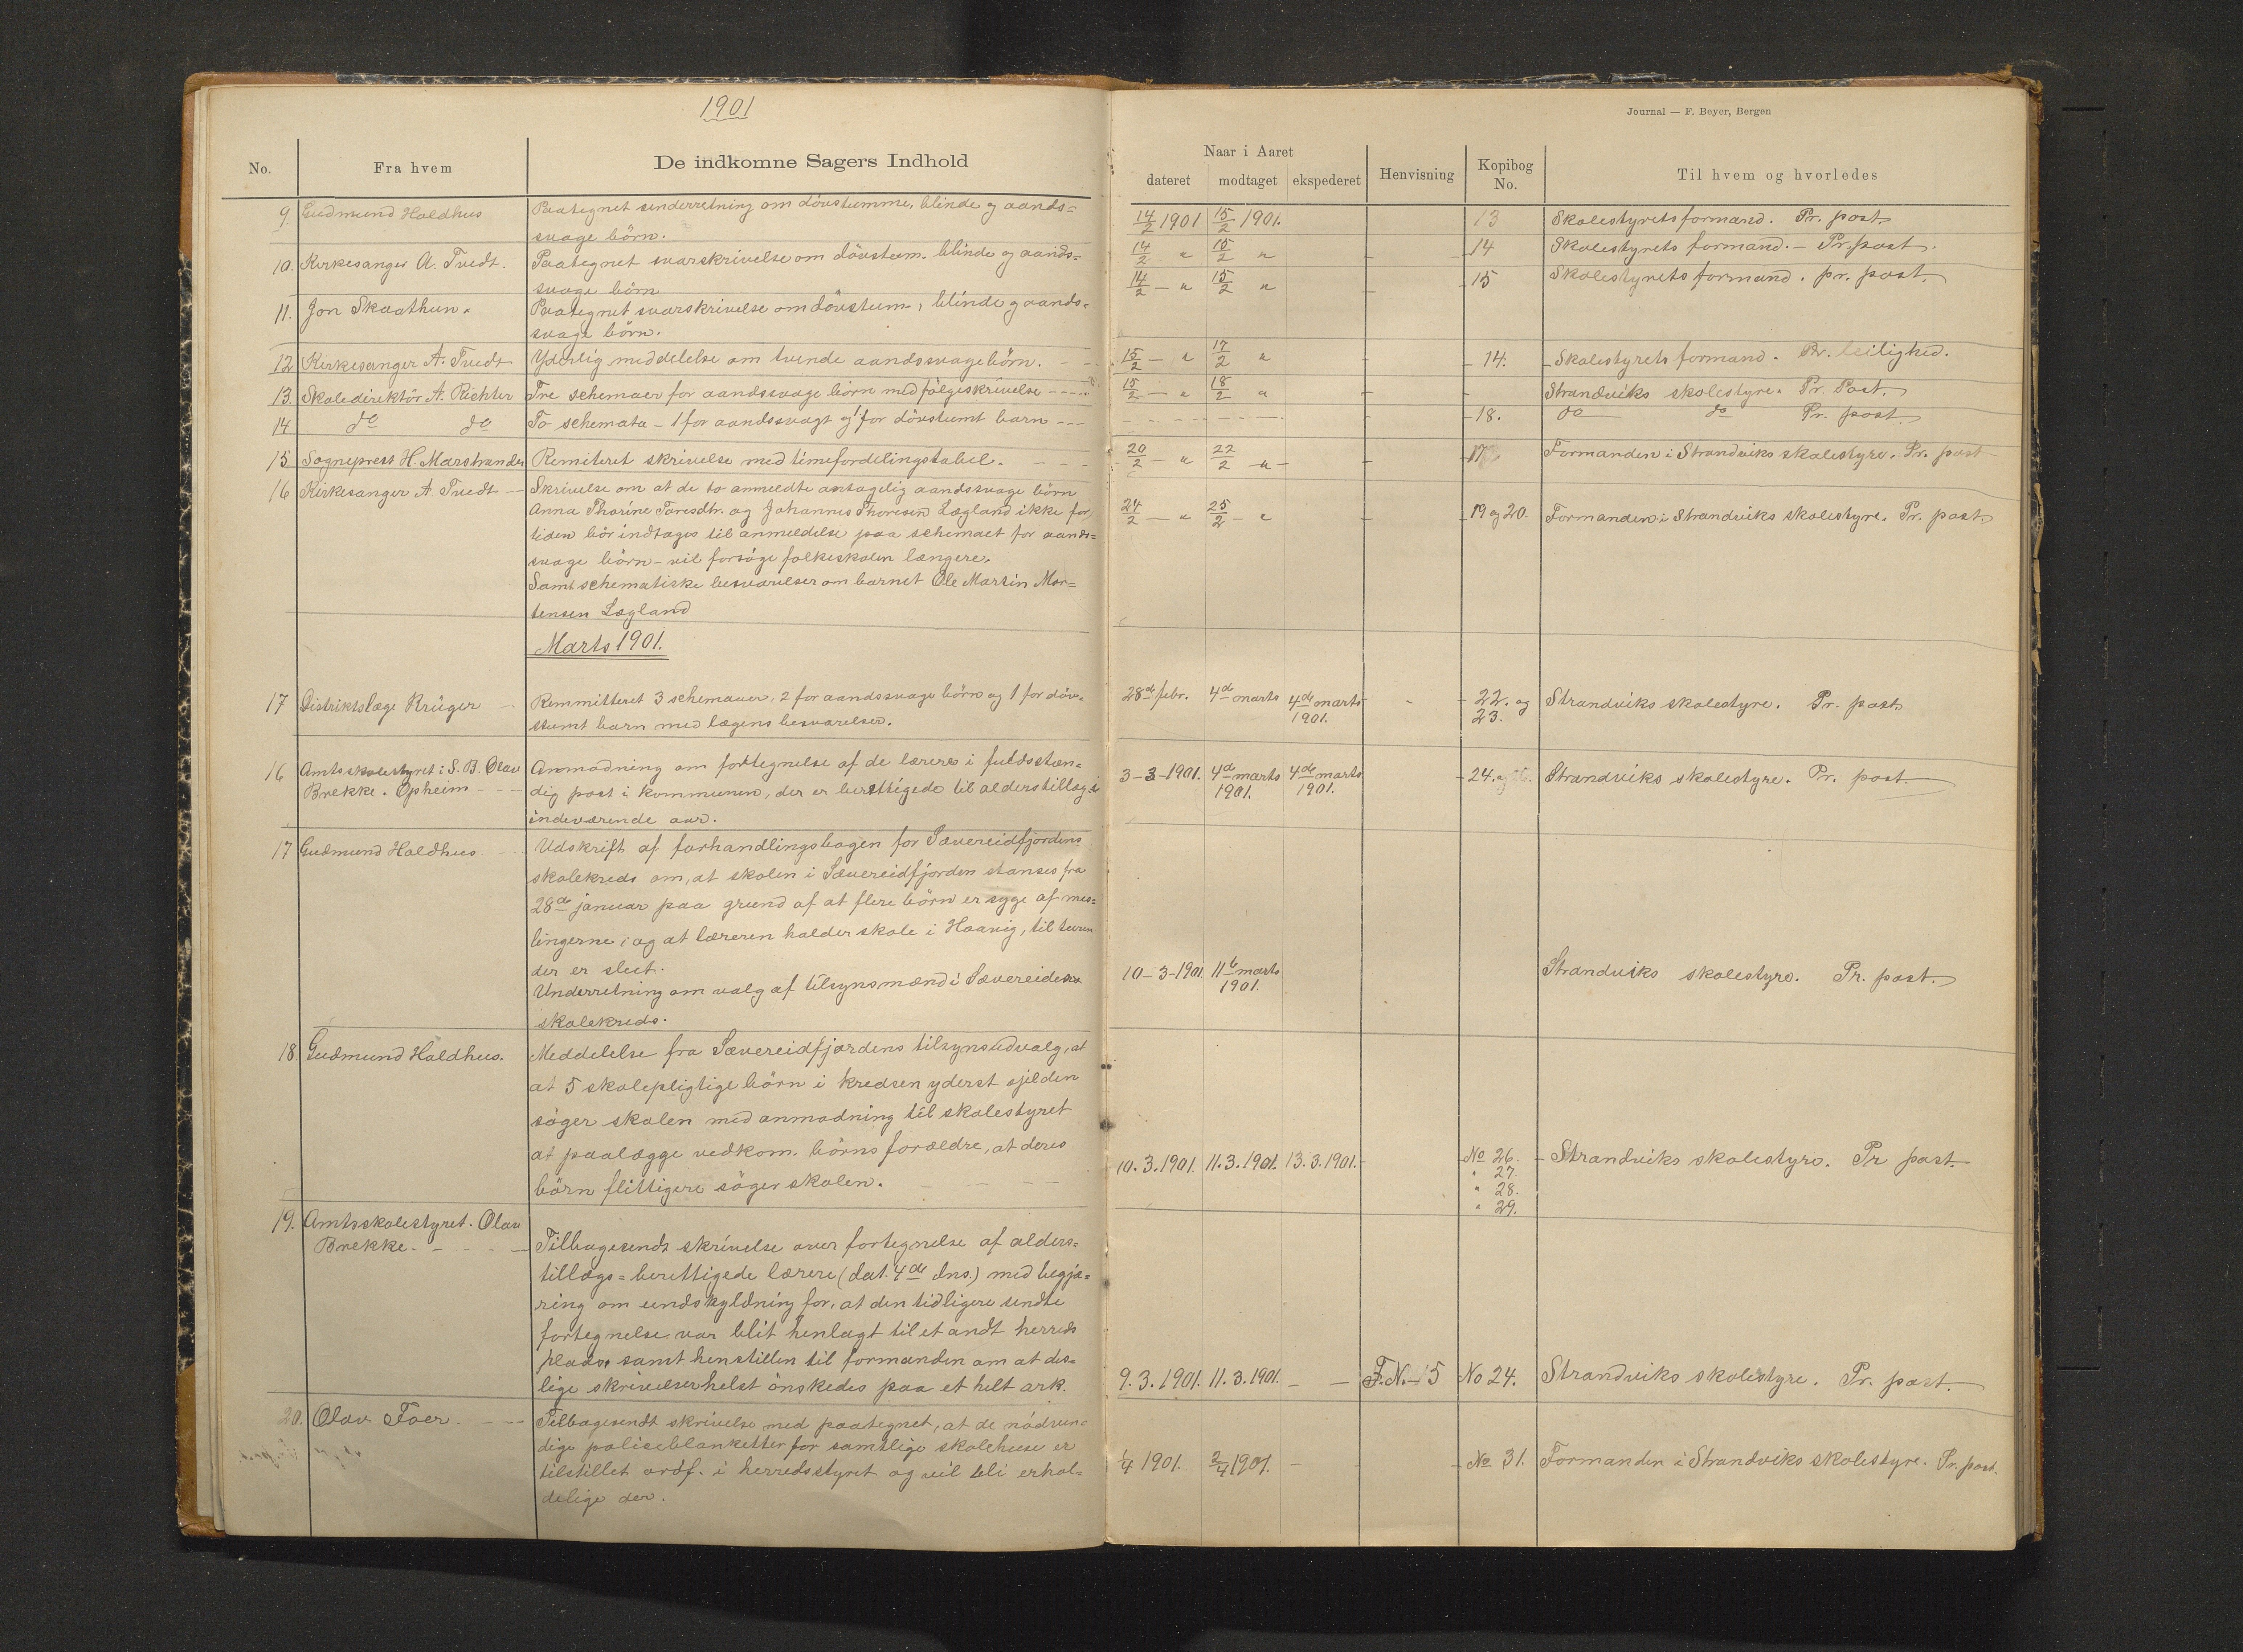 1901
Journal — F. Beyer, Bergen
No. Fra hvem De indkomne Sagers Indhold
Naar i Aaret
dateret modtaget ekspederet Henvisning Kopibog No. Til hvem og hvorledes
9. Gudmund Haldhus Paategnet underretning om dövstumme, blinde og aands=
svage börn.
14/2 1901 15/2 1901. 13 Skolestyrets formand. Pr. post.
10. Kirkesanger A. Tvedt. Paategnet svarskrivelse om dövstum. blinde og aands=
svage börn
14/2 - " 15/2 " 14 Skolestyrets formand. - Pr. post.
11. Jon Skaathun. Paategnet svarskrivelse om dövstum-, blinde og aands-
svage börn.
14/2 - " 15/2 " 15 Skolestyrets formand. pr. post.
12 Kirkesanger A. Tvedt Yderlig meddelelse om tvende aandssvage börn.
15/2 - " 17/2 " 14. Skolestyrets formand. Pr. leilighed.
13. Skoledirektör A. Richter Tre schemaer for aandssvage börn med fölgeskrivelse
15/2 - " 18/2 " Strandviks skolestyre. Pr. Post.
14 do do To schemata - 1 for aandssvagt og 1 for dövstumt barn
18. do do Pr. post.
15 Sogneprest H. Marstrander Remiteret skrivelse med timefordelingstabel.
20/2 - " 22/2 - " - 17 Formanden i Strandviks skolestyre. Pr. post
16 Kirkesanger A Tvedt Skrivelse om at de to anmeldte antagelig aandssvage börn
Anna Thorine Toresdtr. og Johannes Thoresen Lægland ikke for
tiden bör indtages til anmeldelse paa schemaet for aands=
svage börn - vil forsöge folkeskolen længere.
Samt schematiske besvarelser om barnet Ole Martin Mor=
tensen Lægland
24/2 - " 25/2 - " 19 og 20. Formanden i Strandviks skolestyre. Pr. post.
Marts 1901.
17 Distriktslæge Krüger Remmitteret 3 schemaer, 2 for aandssvage börn og 1 for döv-
stumt barn med lægens besvarelser.
28de febr. 4de marts 4de marts 1901. 22. og 23. Strandviks skolestyre. Pr. post.
16 Amtsskolestyret i S. B. Olav
Brekke. Opheim
Anmodning om fortegnelse af de lærere i fuldstæn=
dig post i kommunen, der er berettigede til alderstillæg i
indeværende aar.
3-3-1901. 4de marts 1901. 4de marts 1901. 24. og Strandviks skolestyre. Pr. post.
17 Gudmund Haldhus Udskrift af forhandlingsbogen for Sævereidfjordens
skolekreds om, at skolen i Sævereidfjorden stanses fra
28de januar paa grund af at flere börn er syge af mes=
lingerne; og at læreren holder skole i Haavig, til turen
der er slut.
Underretning om valg af tilsynsmænd i Sævereidens
skolekreds.
10-3-1901. 11te marts 1901. Strandviks skolestyre. Pr. post.
18. Gudmund Haldhus. Meddelelse fra Sævereidfjordens tilsynsudvalg, at
at 5 skolepligtige börn i kredsen yderst sjelden
söger skolen med anmodning til skolestyret
at paalægge vedkom. börns forældre, at deres
börn flittigere söger skolen.
10.3.1901. 11.3.1901. 13.3.1901. No 26. Strandviks skolestyre. Pr post.
" 27.
" 28.
" 29.
19. Amtsskolestyret. Olav
Brekke.
Tilbagesendt skrivelse over fortegnelse af alders=
tillægs=berettigede lærere (dat. 4de dns.) med begjæ=
ring om undskyldning for, at den tidligere sendte
fortegnelse var blit henlagt til et andt herreds
plads, samt henstillen til formanden om at des=
lige skrivelser helst önskedes paa et helt ark.
9.3.1901. 11.3.1901. F.N. 15 No 24. Strandviks skolestyre. Pr. post.
20. Olav Foer. Tilbagesendt skrivelse med paategnet, at de nödven=
dige politiblanketter for samtlige skolehuse er
tilstillet ordf. i herredsstyret og vil bli erhol=
delige der.
1/4 1901. 2/4 1901. No 31. Formanden i Strandviks skolestyre. Pr. post.